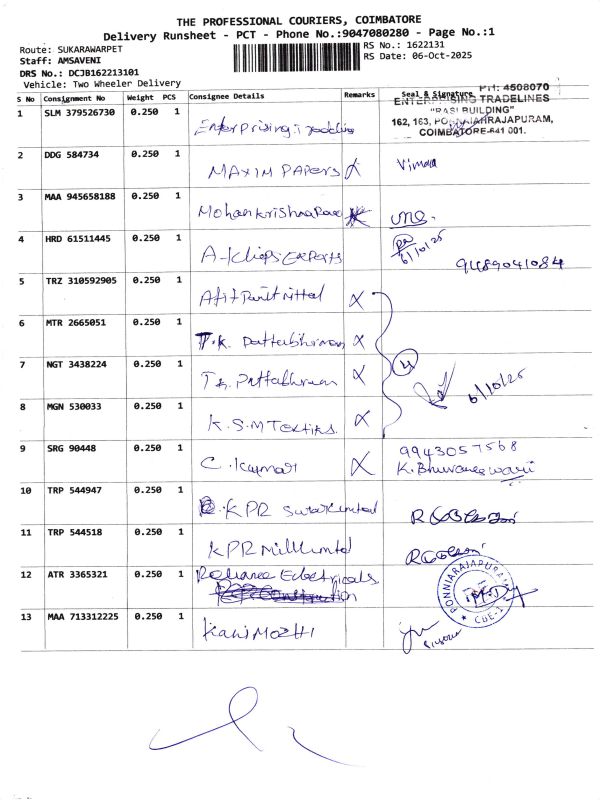 THE PROFESSIONAL COURIERS, COIMBATORE
Delivery Runsheet - PCT - Phone No.:9047080280 - Page No.:1
Route: SUKARAWARPET
RS No.: 1622131
Staff: AMSAVENI
RS Date: 06-Oct-2025
DRS No.: DCJB162213101
Vehicle: Two Wheeler Delivery
S No Consignment No Weight PCS Consignee Details Remarks Seal & Signature
PH: 4508070
ENTERPRISING TRADELINES
"RASI BUILDING"
162, 163, PONNIAHRAJAPURAM,
COIMBATORE-641 001.
1 SLM 379526730 0.250 1 Enterprising
2 DDG 584734 0.250 1 MAXIM PAPERS X Vimala
3 MAA 945658188 0.250 1 Mohan Krishna
4 HRD 61511445 0.250 1 A-Klips Exports 6/10/25
9489041084
5 TRZ 310592905 0.250 1 X
6 MTR 2665051 0.250 1 T.K. Pattabhiraman X
7 NGT 3438224 0.250 1 T.K. Pattabhiraman X
4
6/10/25
8 MGN 530033 0.250 1 K.S.M Textiles. X
9 SRG 90448 0.250 1 C. Kumar X
9943057568
K. Bhuvaneswari
10 TRP 544947 0.250 1 KPR
11 TRP 544518 0.250 1 KPR Mill Limited
12 ATR 3365321 0.250 1 Reliance Electricals
PONNIARAJAPURAM
CBE-1
13 MAA 713312225 0.250 1 KANIMOZHI